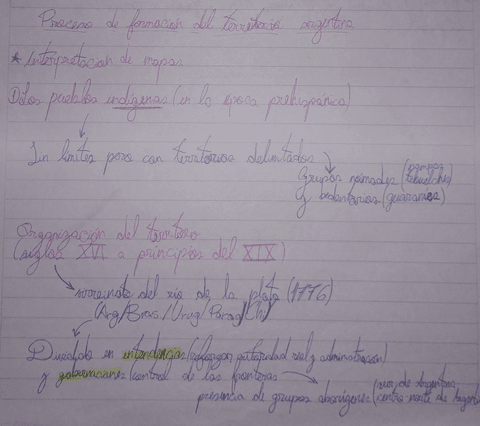 Proceso de formación del territorio argentino
* Interpretacion de mapas
① Los pueblos indígenas (en la época prehispánica)
Sin limites pero con territorios delimitados
Grupos nomades (pampas tehuelches)
y sedentarios (guaranies)
Organización del territorio
(siglos XVI a principios del XIX)
virreinato del rio de la plata (1776)
(Arg/Boli/Urug/Parag/Ch)
Dividido en intendencias (refuerzan autoridad real y administracion)
y gobernaciones (control de las fronteras
presencia de grupos aborigenes (sur de Argentina
centro norte de Argentina